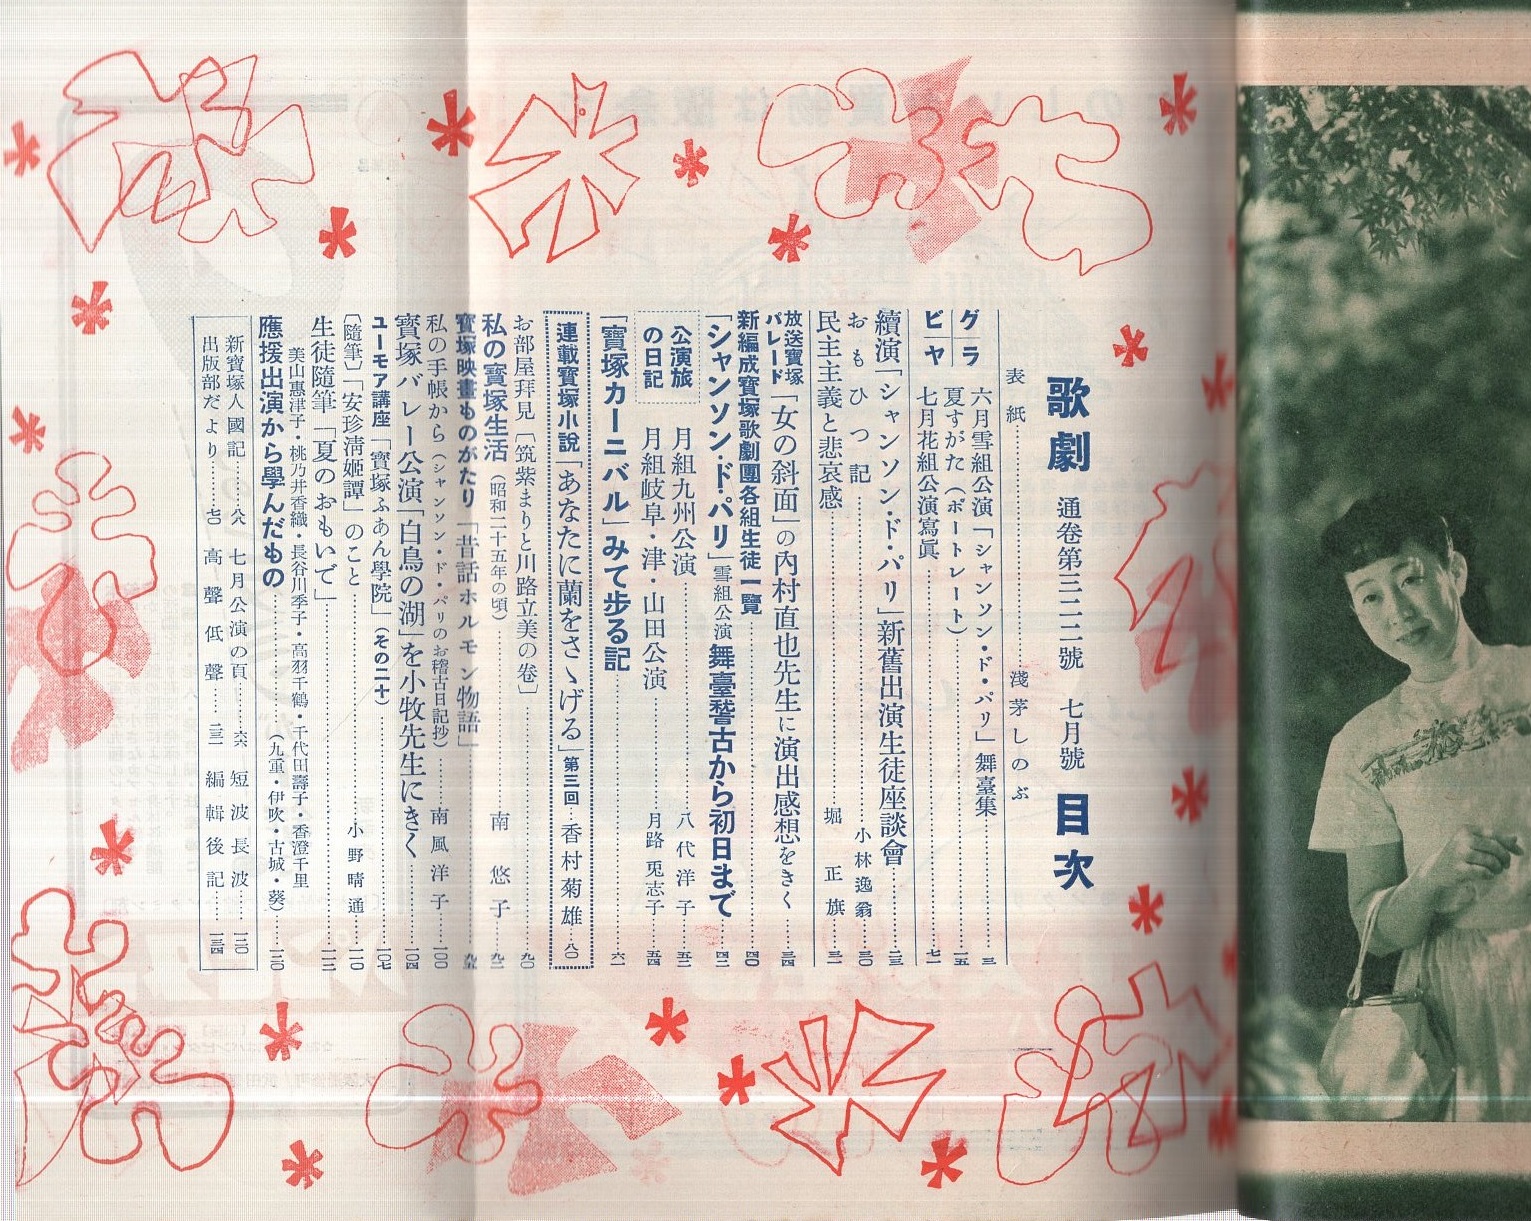 歌劇 通卷第三二二號 七月號 目次
表紙 淺茅しのぶ
グラビヤ
六月雪組公演「シャンソン・ド・パリ」舞臺集 三
夏すがた(ポートレート) 一五
七月花組公演寫眞 七一
續演「シャンソン・ド・パリ」新舊出演生徒座談會 二三
おもひつ記 小林逸翁 三〇
民主主義と悲哀感 堀正旗 三一
放送寶塚パレード「女の斜面」の內村直也先生に演出感想をきく 三四
新編成寶塚歌劇團各組生徒一覽 四〇
「シャンソン・ド・パリ」雪組公演 舞臺稽古から初日まで 四二
公演旅の日記
月組九州公演 八代洋子 五二
月組岐阜・津・山田公演 月路兎志子 五四
「寶塚カーニバル」みて步る記 六一
連載寶塚小說「あなたに蘭をさゝげる」第三回 香村菊雄 八〇
お部屋拜見〔筑紫まりと川路立美の卷〕 九〇
私の寶塚生活(昭和二十五年の頃) 南悠子 九二
寶塚映畫ものがたり「昔話ホルモン物語」 九五
私の手帳から(シャンソン・ド・パリのお稽古日記抄) 南風洋子 一〇〇
寶塚バレー公演「白鳥の湖」を小牧先生にきく 一〇四
ユーモア講座「寶塚ふあん學院」(その二十) 一〇七
〔隨筆〕「安珍淸姬譚」のこと 小野晴通 一一〇
生徒隨筆「夏のおもいで」 一一二
美山惠津子・桃乃井香織・長谷川季子・高羽千鶴・千代田壽子・香澄千里
應援出演から學んだもの (九重・伊吹・古城・葵) 一二〇
新寶塚人國記 八八 七月公演の頁 六六 短波長波 一三〇
出版部だより 七〇 高聲低聲 一三一 編輯後記 一三四